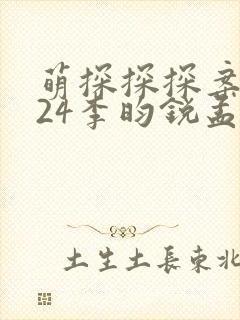 萌探探探案
24李昀锐孟
土生土長東北